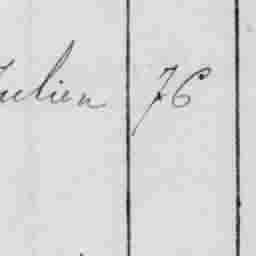 Julien 76